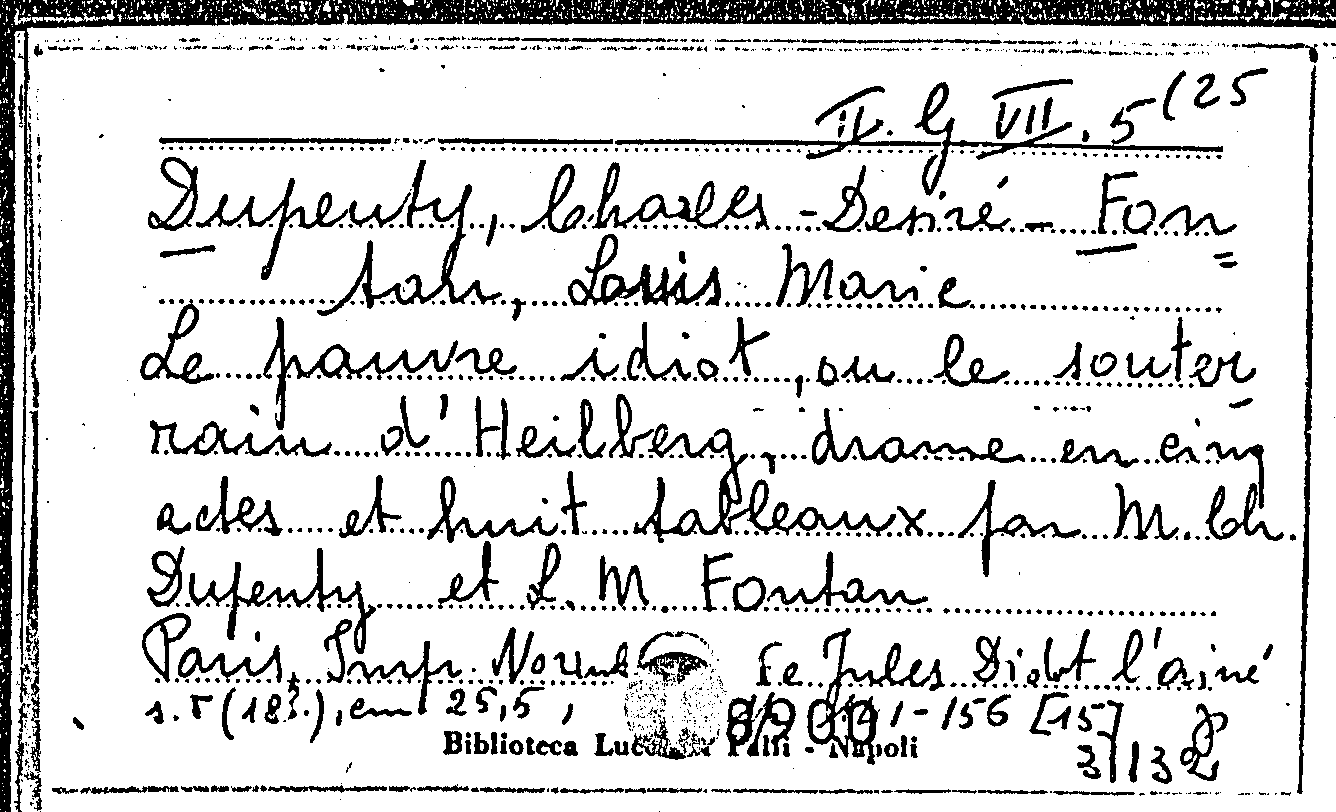 II. G. VII. 5 (25
Dupeuty, Charles-Desiré - Fon
tan, Louis Marie
Le pauvre idiot, ou le souter
rain d'Heilberg, drame en cinq
actes et huit tableaux par M. Ch.
Dupenty et L. M. Fontan
Paris, Imp. de Jules Didot l'ainé
(18?.), cm 25,5, 141-156 [15] p
Biblioteca Lucchesi Palli - Napoli